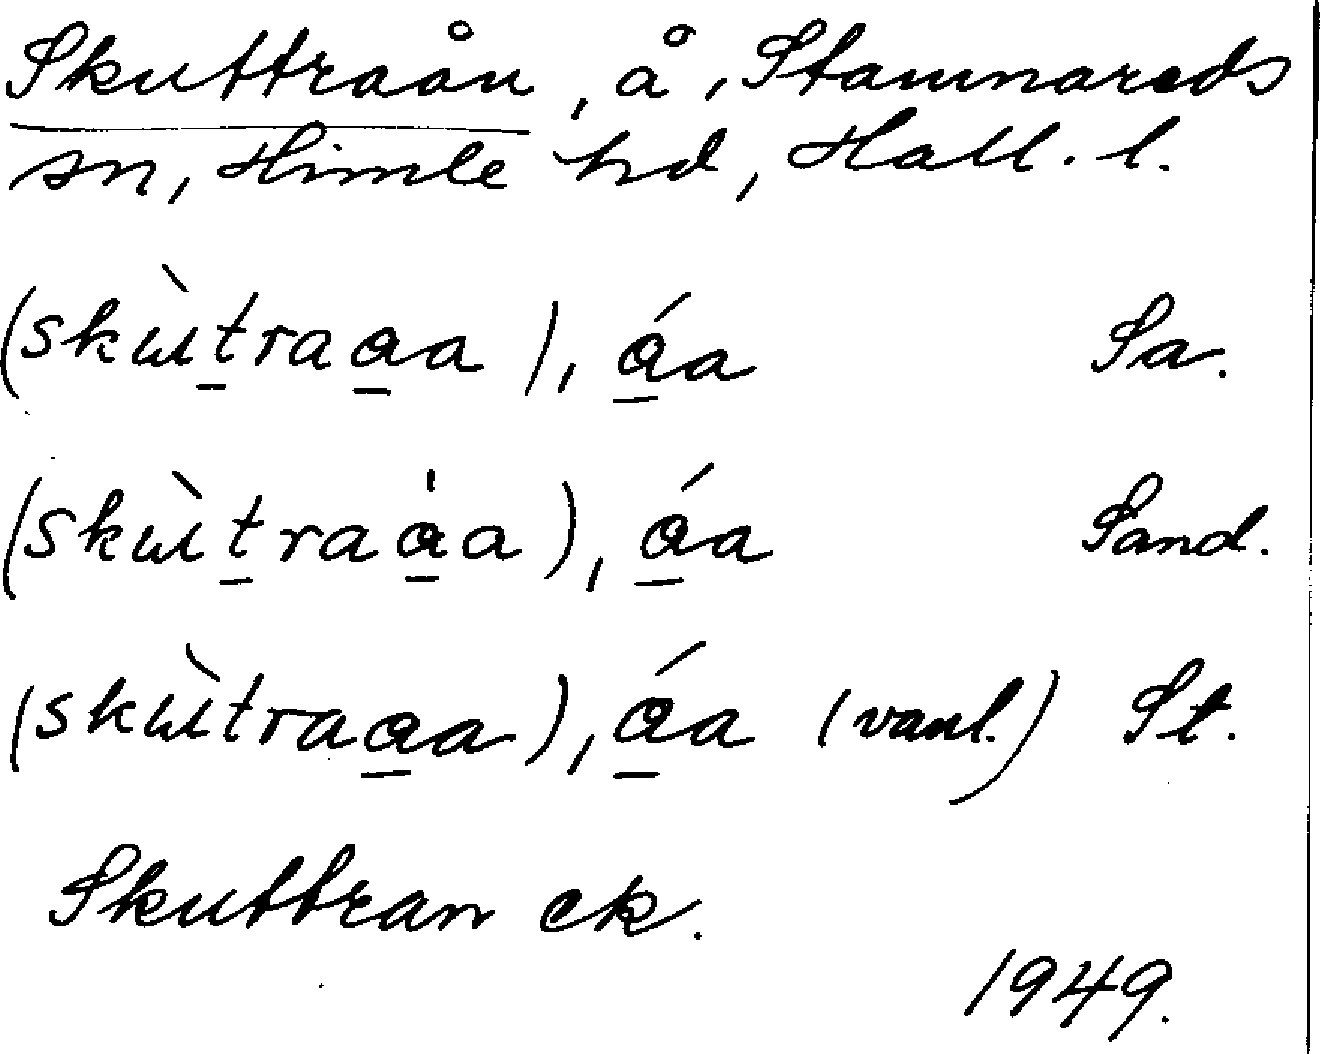 Skuttraån, å, Stamnareds
sn, Himle hd, Hall. l.
(skùtraaa), áa Sa.
(skùtraa̍a), áa Sand.
(skùtraaa), áa (vanl.) St.
Skuttran ek.
1949.